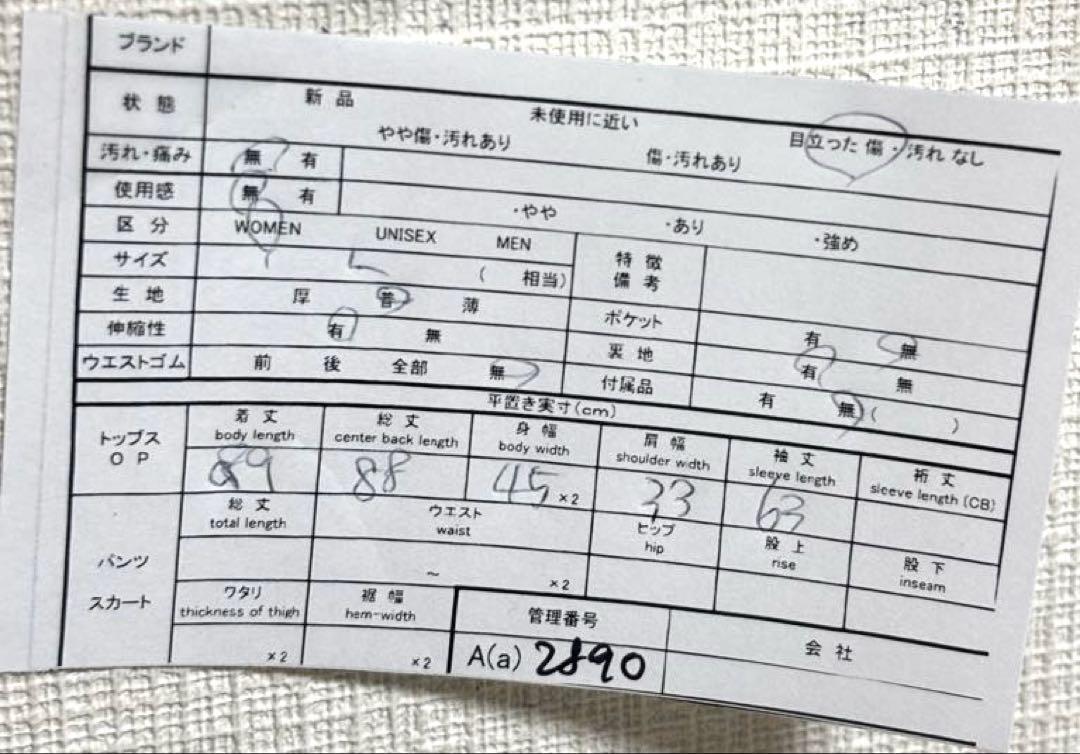 ブランド
状態 新品 未使用に近い 目立った傷・汚れなし
やや傷・汚れあり 傷・汚れあり
汚れ・痛み 無 有
使用感 無 有 ・やや ・あり ・強め
区分 WOMEN UNISEX MEN 特徴備考
サイズ L ( 相当)
生地 厚 普 薄 ポケット 有 無
伸縮性 有 無 裏地 有 無
ウエストゴム 前 後 全部 無 付属品 有 無 ( )
平置き実寸(cm)
トップス OP 着丈 総丈 身幅 肩幅 袖丈 裄丈
body length center back length body width shoulder width sleeve length sleeve length (CB)
89 88 45 ×2 33 63
パンツ スカート 総丈 ウエスト ヒップ 股上 股下
total length waist hip rise inseam
～ ×2
ワタリ 裾幅 管理番号 会社
thickness of thigh hem-width
×2 ×2 A(a) 2890